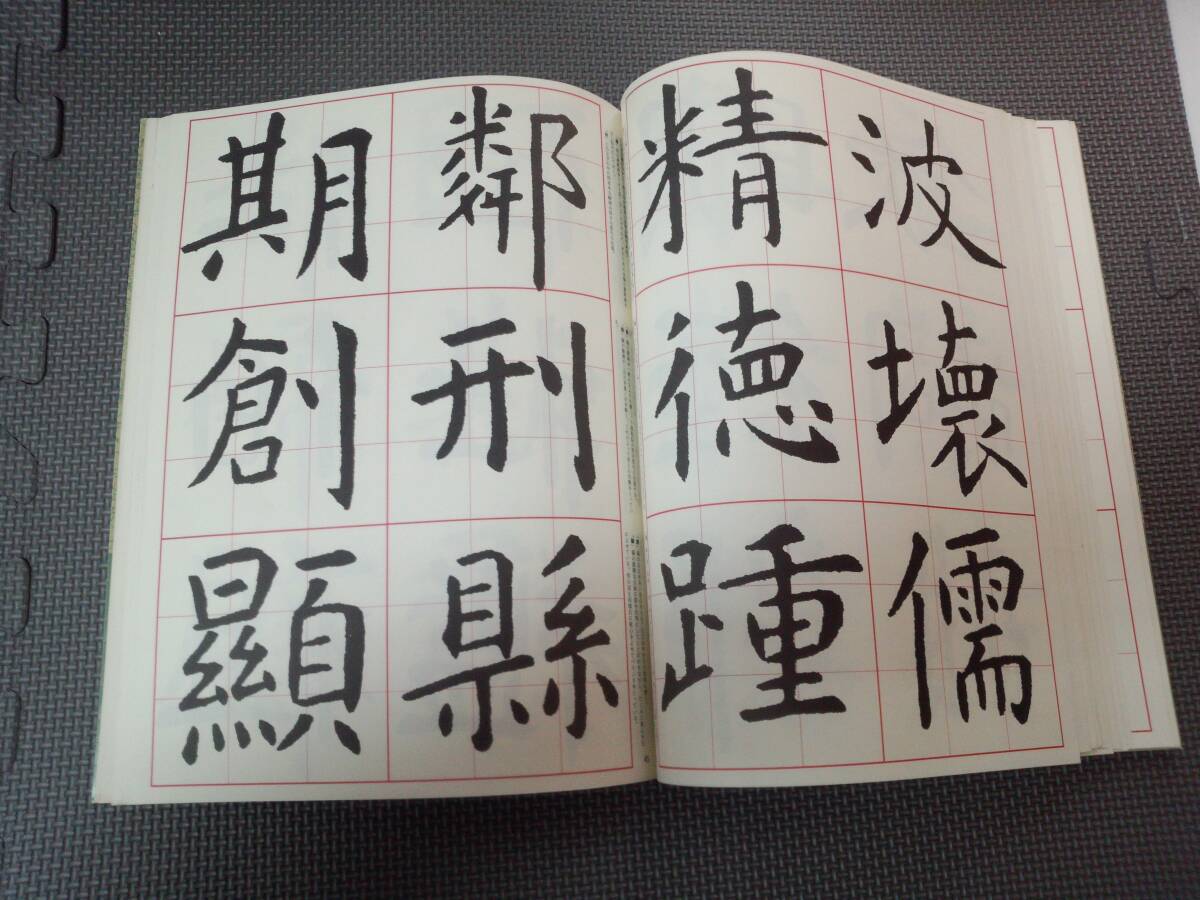 波壞儒
精德踵
鄰刑縣
期創顯